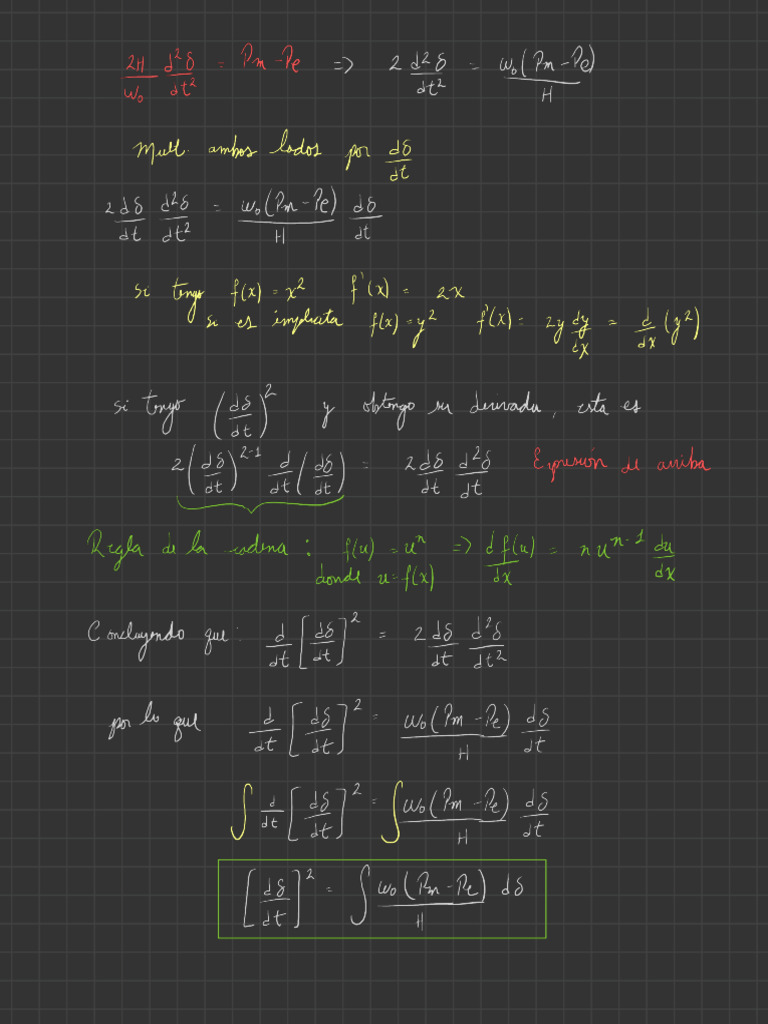 2H/ω₀ d²δ/dt² = Pm - Pe => 2 d²δ/dt² = ω₀(Pm - Pe)/H
Mult. ambos lados por dδ/dt
2 dδ/dt d²δ/dt² = ω₀(Pm - Pe)/H dδ/dt
si tengo f(x) = x² f'(x) = 2x
si es implicita f(x) = y² f'(x) = 2y dy/dx = d/dx (y²)
si tengo (dδ/dt)² y obtengo su derivada, esta es
2(dδ/dt)²⁻¹ d/dt (dδ/dt) = 2 dδ/dt d²δ/dt Expresión de arriba
Regla de la cadena: f(u) = uⁿ => d f(u)/dx = n uⁿ⁻¹ du/dx
donde u = f(x)
Concluyendo que: d/dt [dδ/dt]² = 2 dδ/dt d²δ/dt²
por lo que d/dt [dδ/dt]² = ω₀(Pm - Pe)/H dδ/dt
∫ d/dt [dδ/dt]² = ∫ ω₀(Pm - Pe)/H dδ/dt
[dδ/dt]² = ∫ ω₀(Pm - Pe)/H dδ